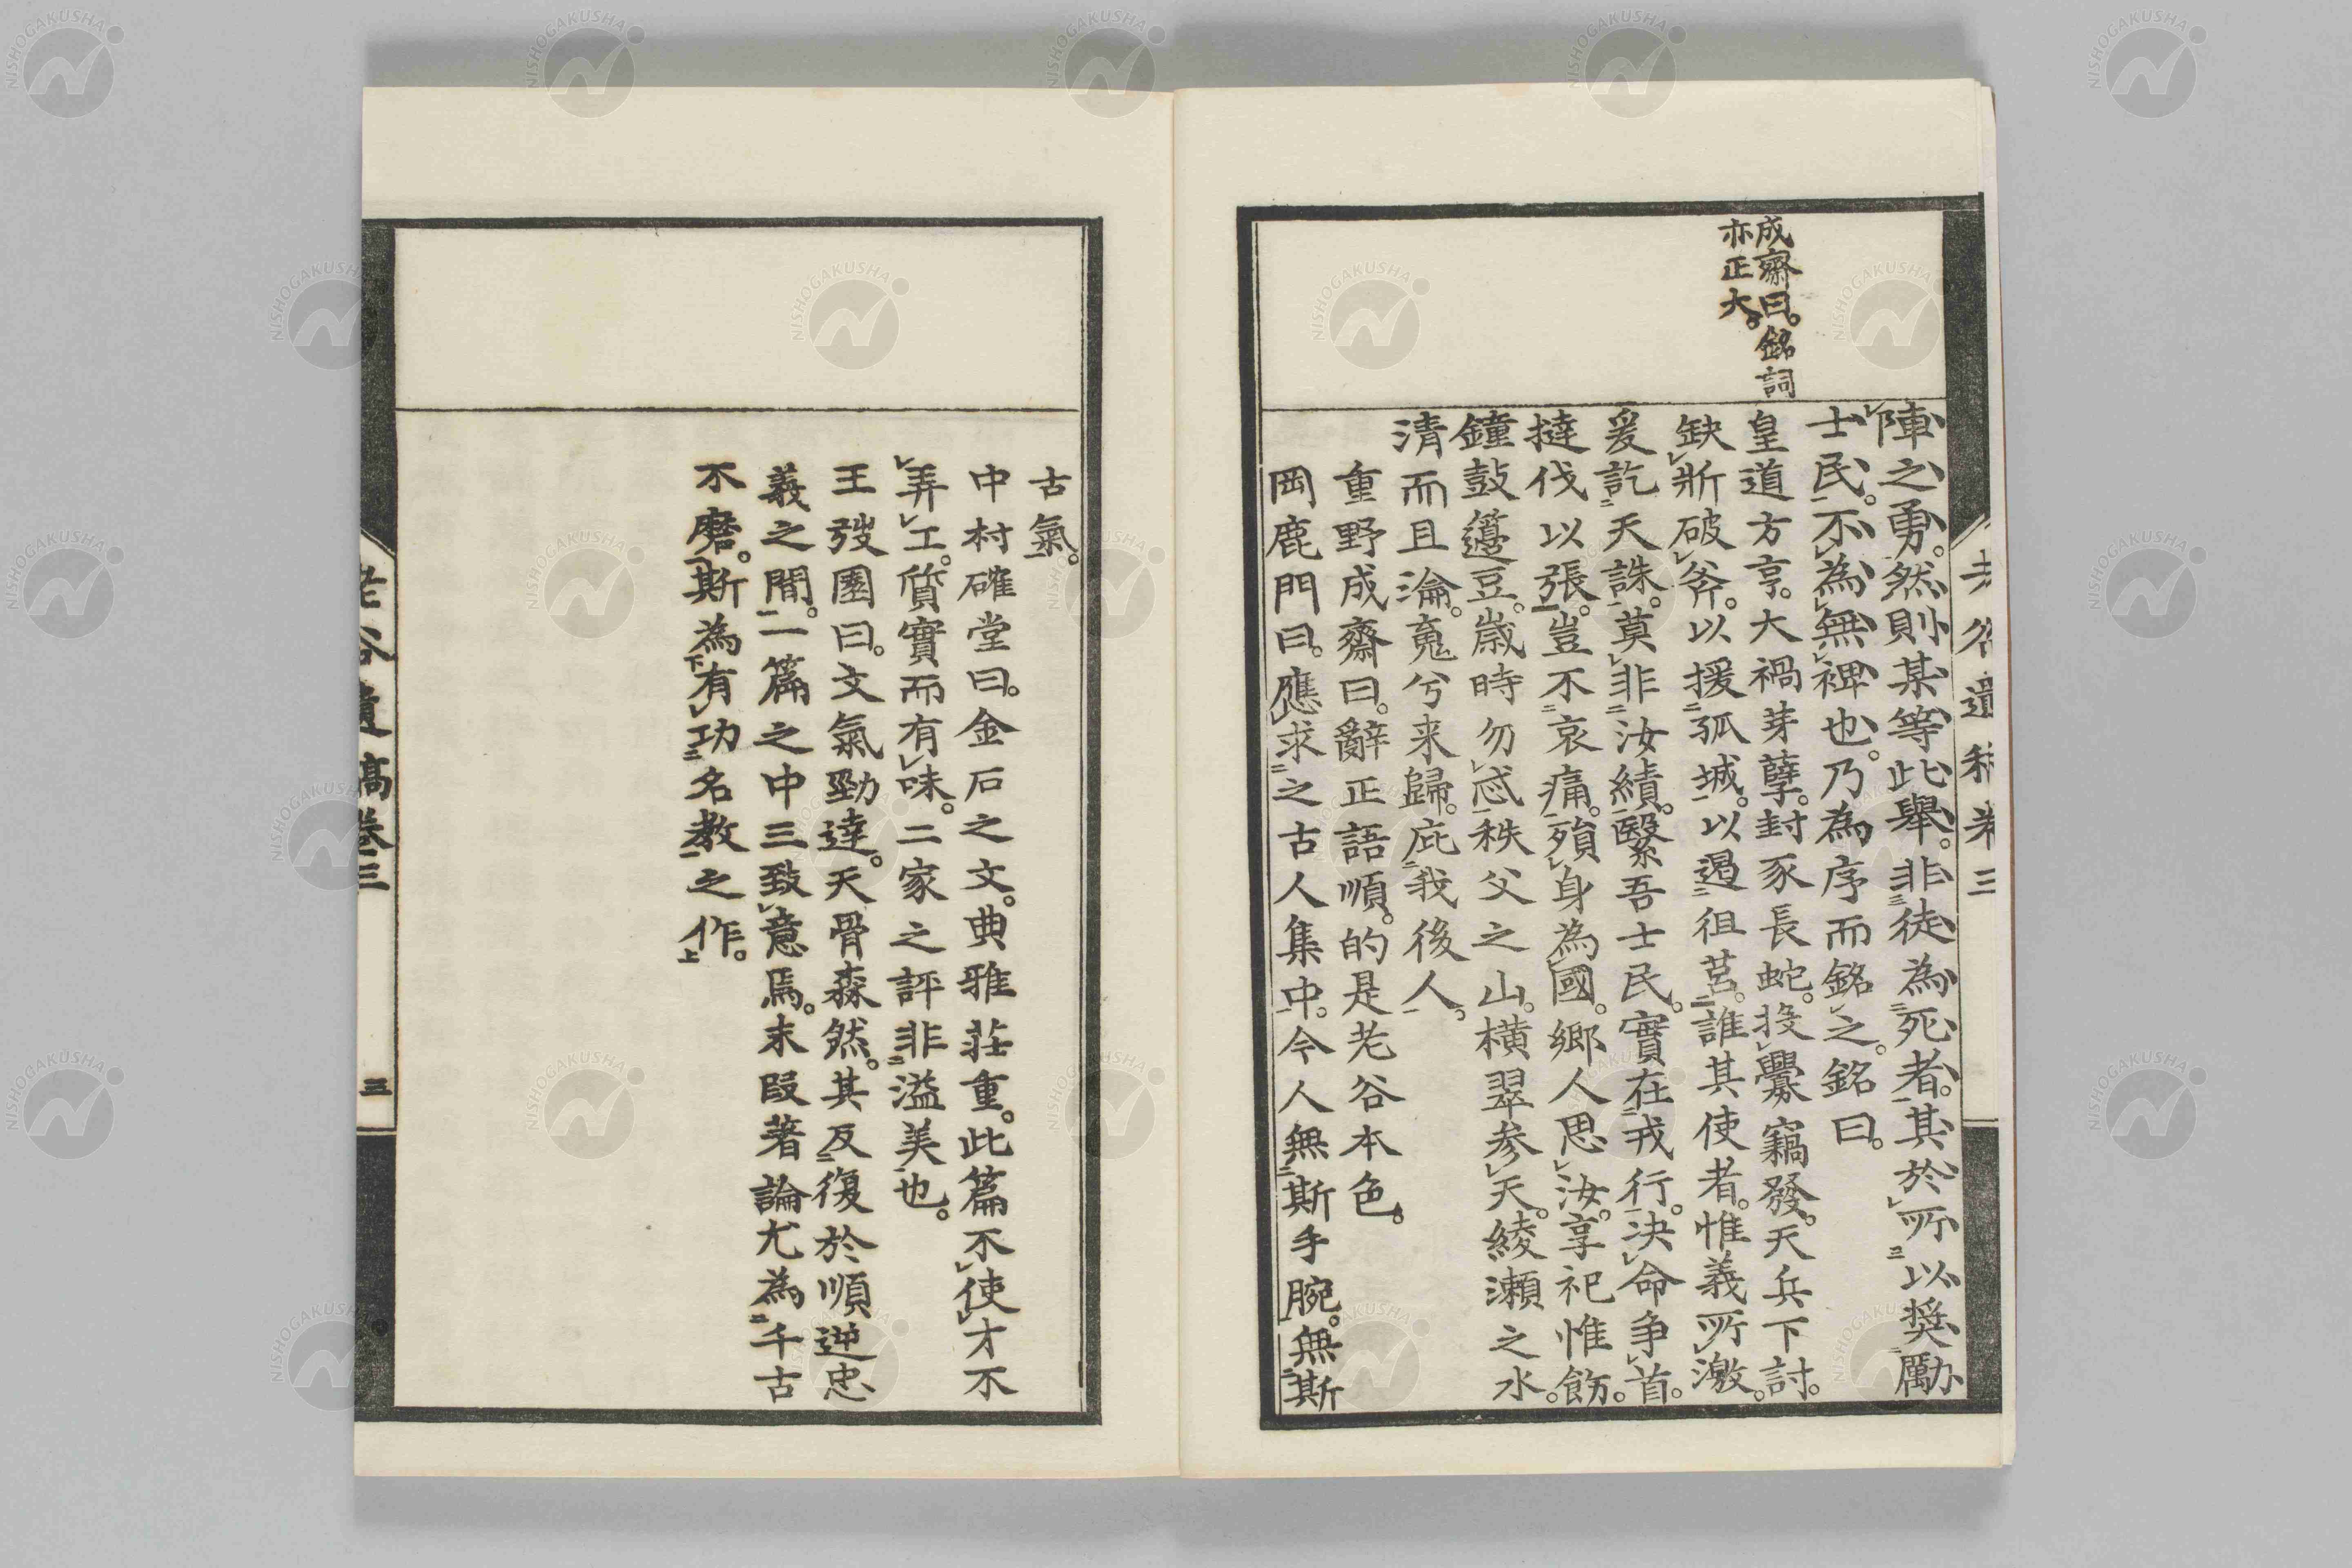 老谷遺稿卷三
成齋曰。銘詞
亦正大。
陣之勇。然則某等此舉。非徒為死者。其於所以奬勵
士民。不為無裨也。乃為序而銘之。銘曰。
皇道方亨。大禍芽孽。封豕長蛇。投釁竊發。天兵下討。
缺斨破斧。以援孤城。以遏徂莒。誰其使者。惟義所激。
爰訖天誅。莫非汝績。繄吾士民。實在戎行。決命争首。
撻伐以張。豈不哀痛。殞身為國。鄉人思汝。享祀惟飭。
鐘鼓籩豆。歲時勿忒。秩父之山。横翠参天。綾瀬之水。
清而且淪。䰟兮来歸。庇我後人。
重野成齋曰。辭正語順。的是老谷本色。
岡鹿門曰。應求之古人集中。今人無斯手腕。無斯
古氣。
中村確堂曰。金石之文。典雅莊重。此篇不使才不
弄工。質實而有味。二家之評非溢美也。
王弢園曰。文氣勁達。天骨森然。其反復於順逆忠
義之間。二篇之中三致意焉。末段著論尤為千古
不磨。斯為有功名教之作。
老谷遺稿卷三
三
NISHOGAKUSHA